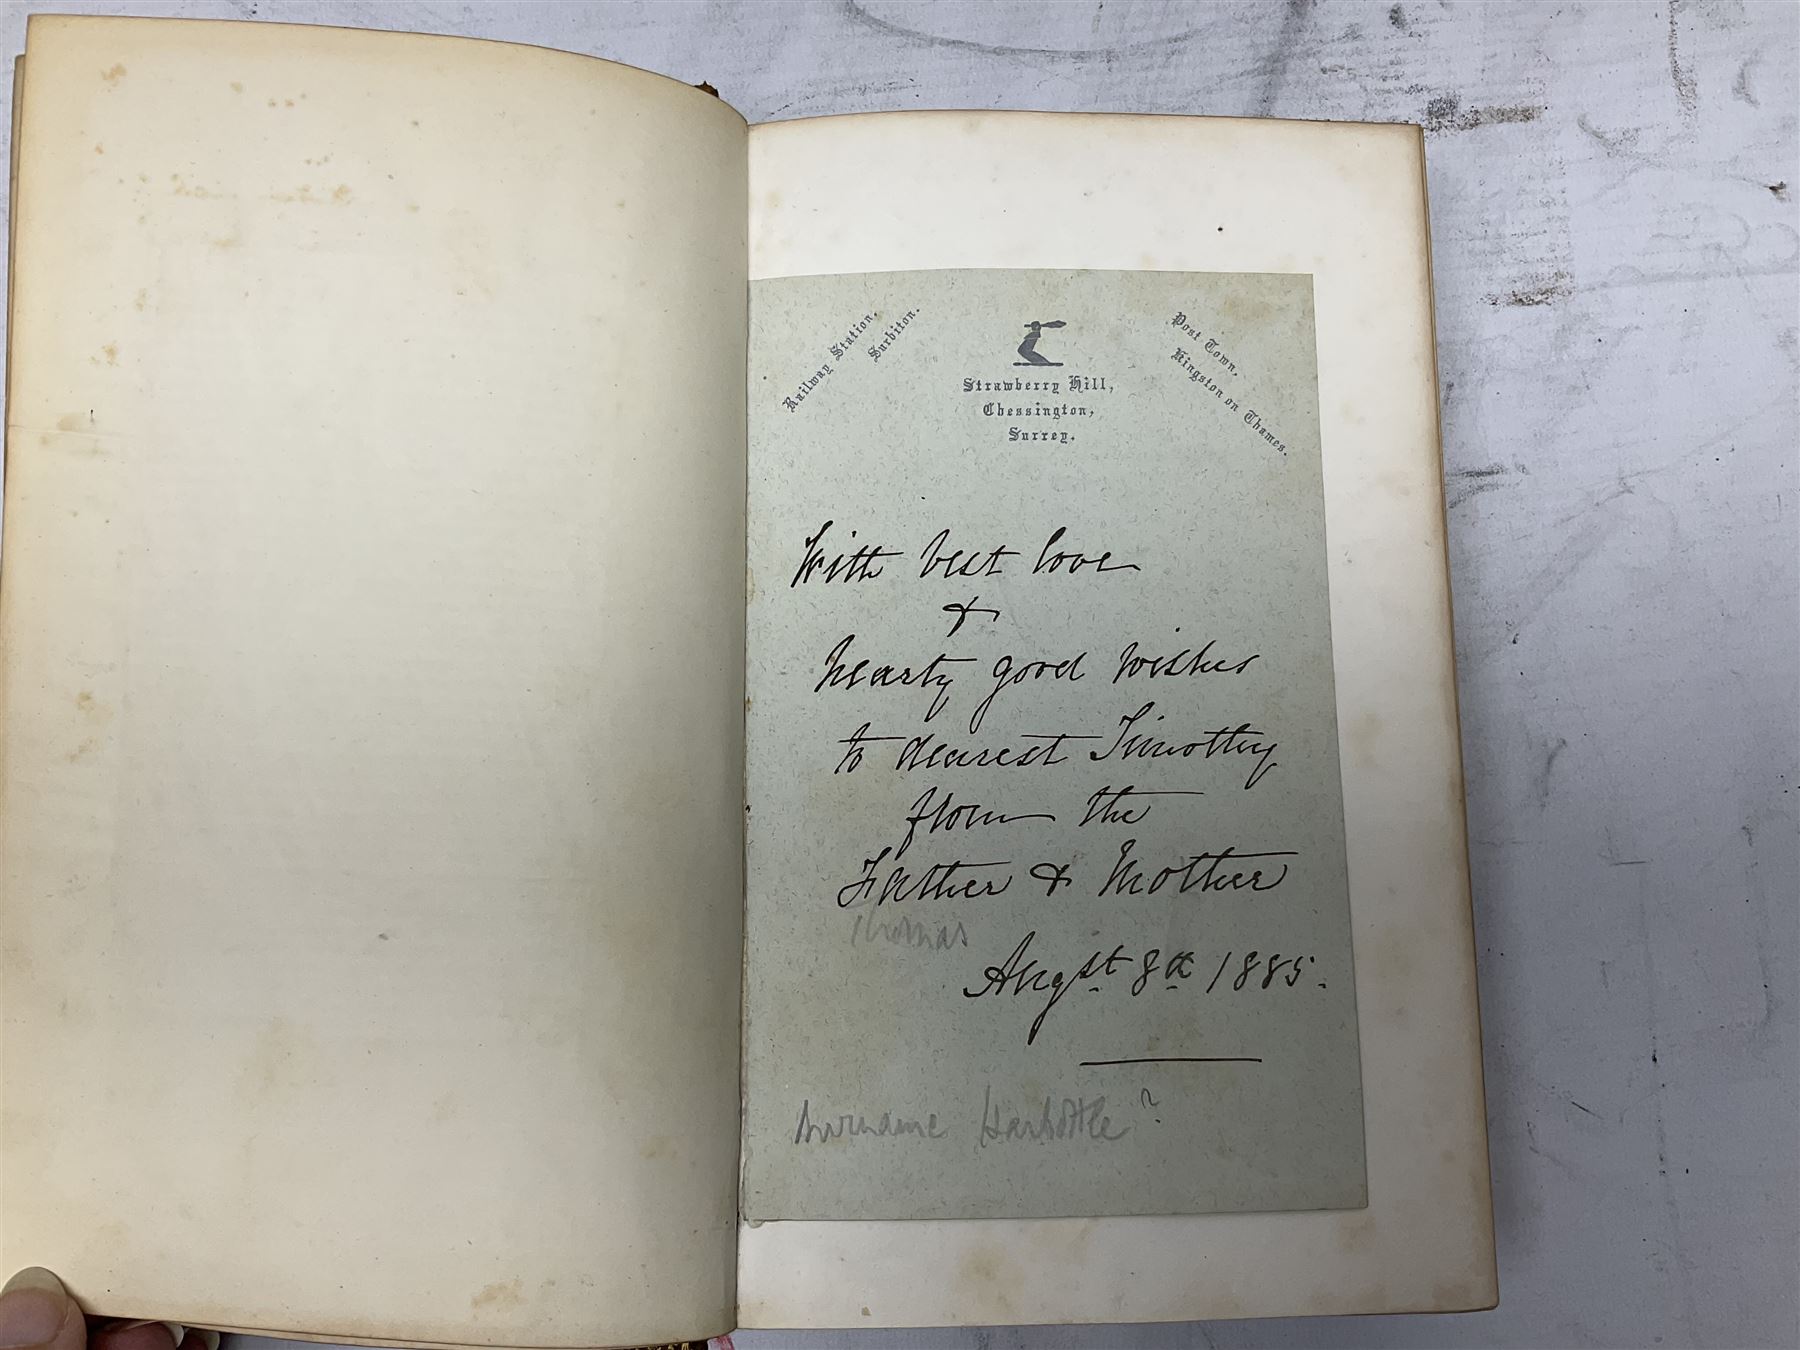 Railway Station,
Surbiton.
Strawberry Hill,
Chessington,
Surrey.
Post Town,
Kingston on Thames.
With best love
&
hearty good wishes
to dearest Timothy
from the
Father & Mother
Thomas
Augst 8th 1885.
Surname Harbottle?